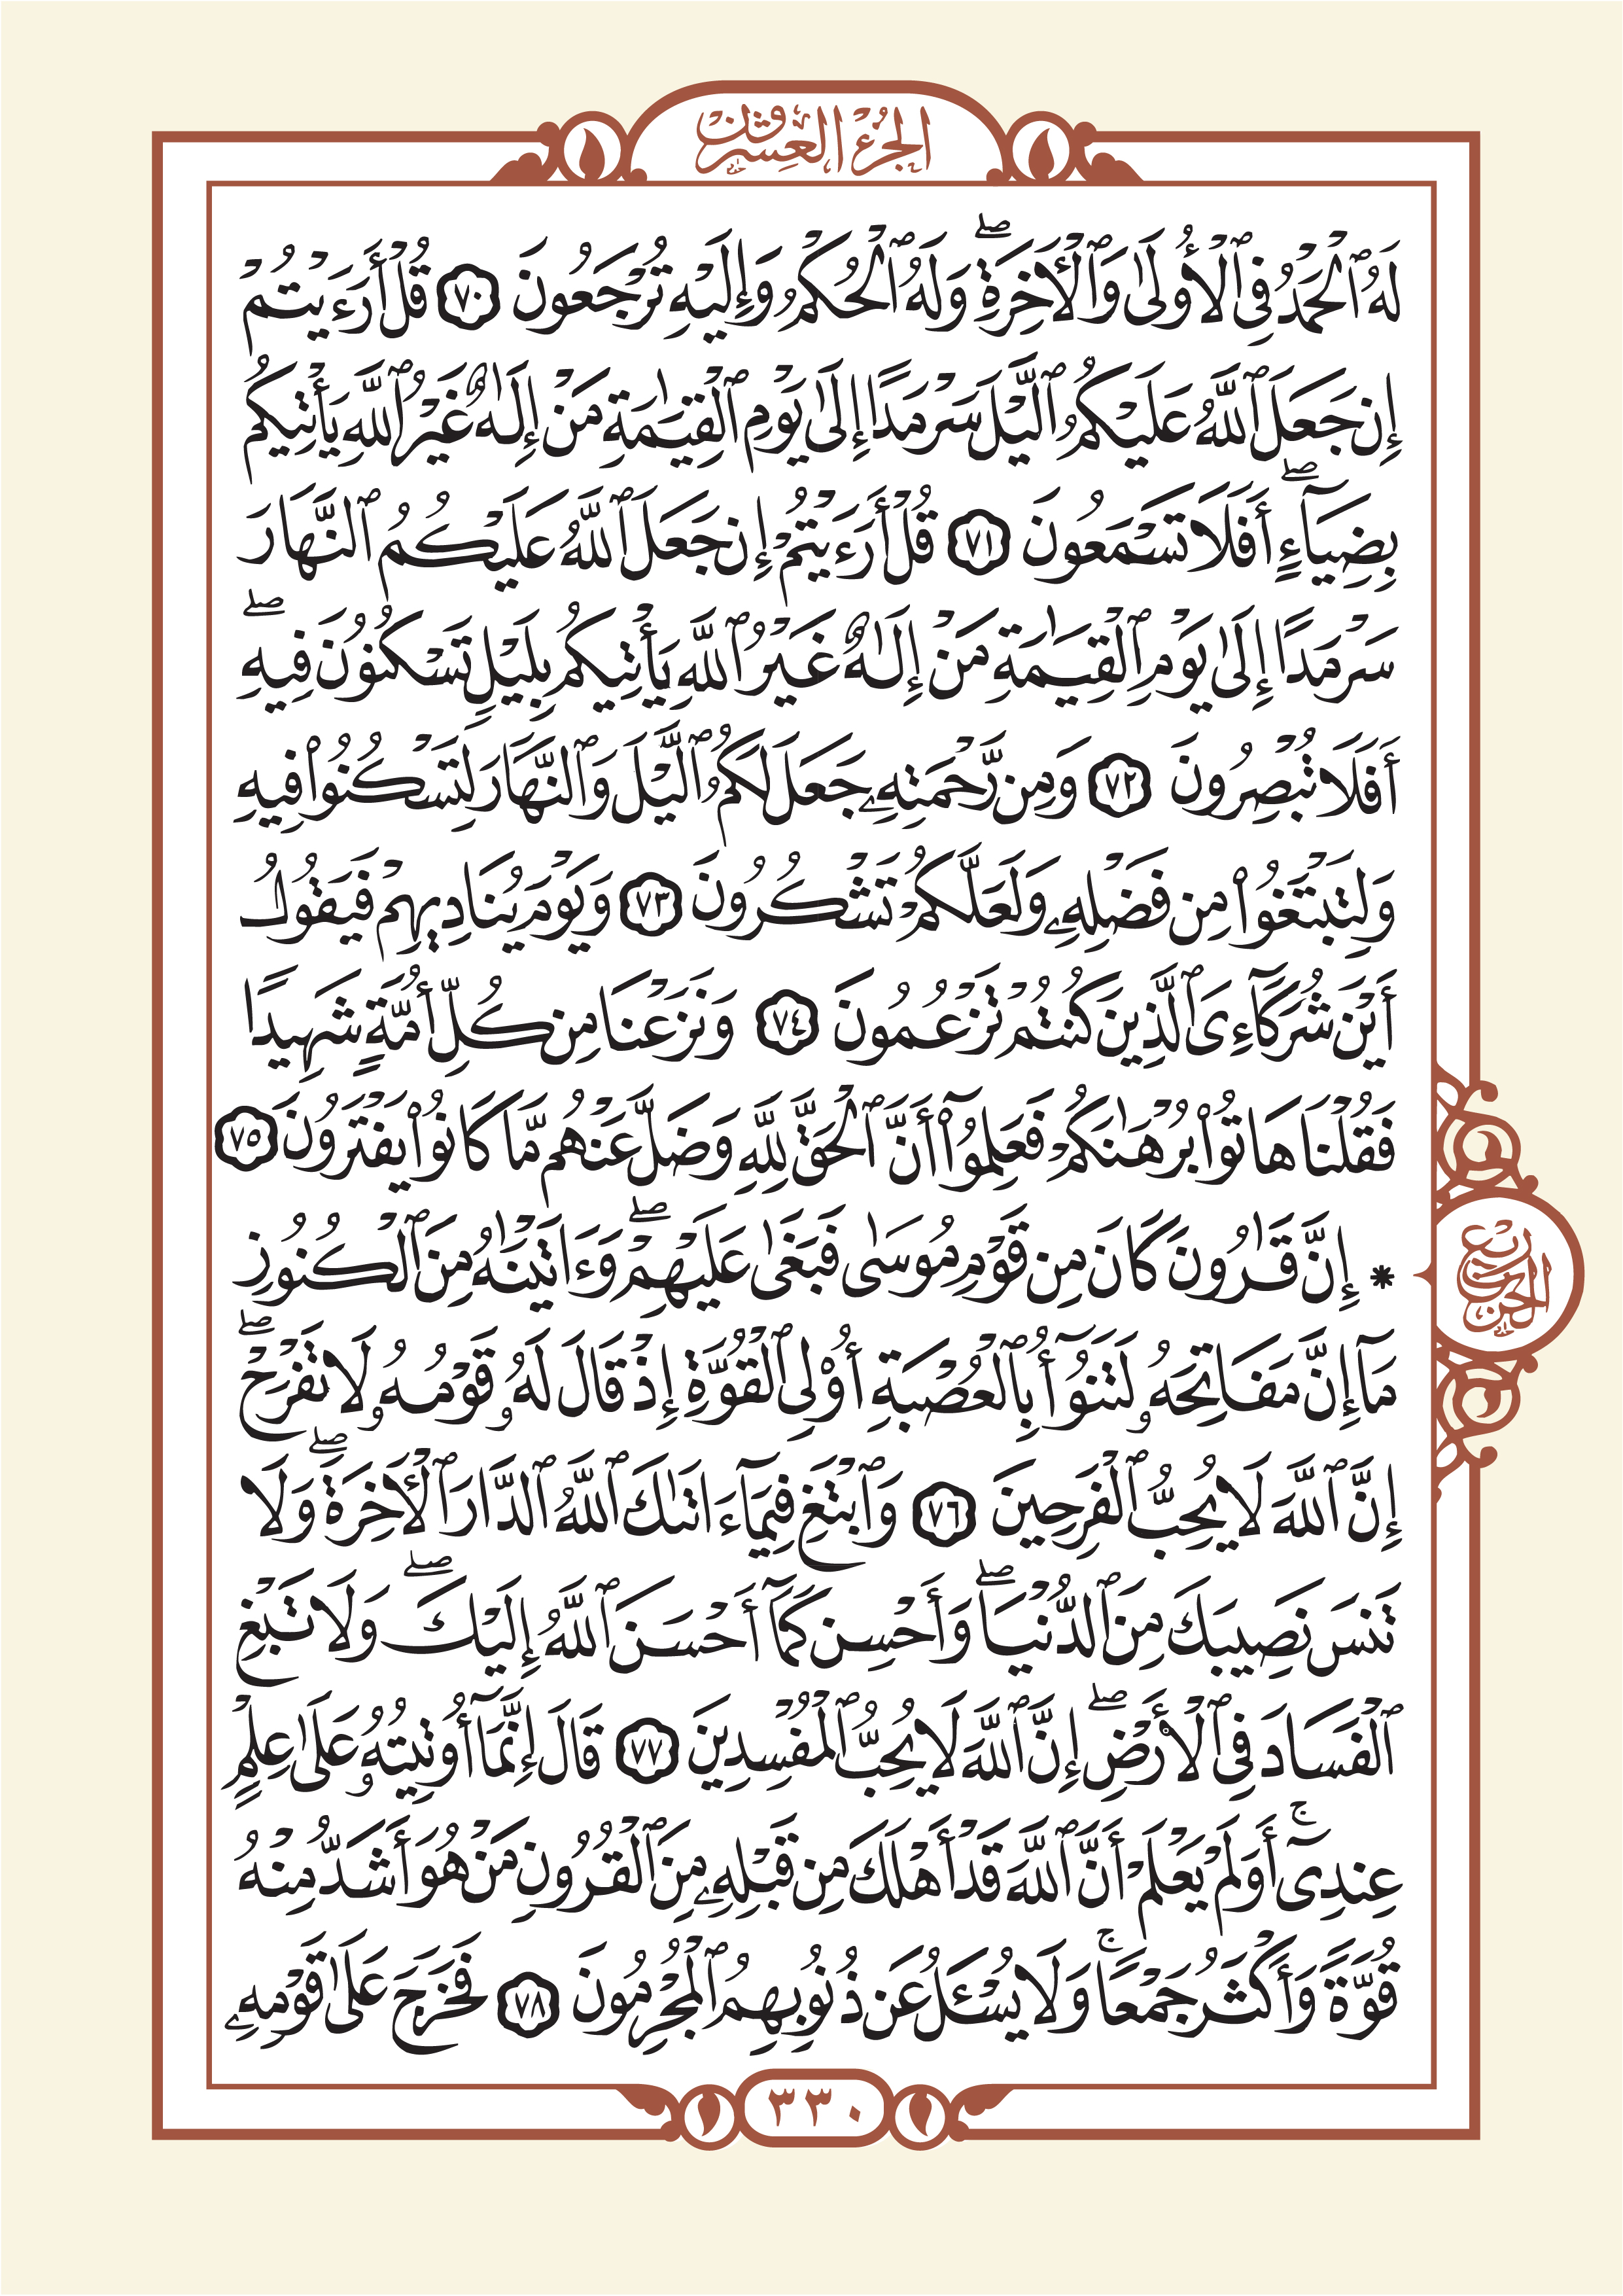 الجزء العشرون
لَهُ ٱلْحَمْدُ فِي ٱلْأُولَىٰ وَٱلْأٓخِرَةِۖ وَلَهُ ٱلْحُكْمُ وَإِلَيْهِ تُرْجَعُونَ ٧٠ قُلْ أَرَءَيْتُمْ
إِن جَعَلَ ٱللَّهُ عَلَيْكُمُ ٱلَّيْلَ سَرْمَدًا إِلَىٰ يَوْمِ ٱلْقِيَٰمَةِ مَنْ إِلَٰهٌ غَيْرُ ٱللَّهِ يَأْتِيكُم
بِضِيَآءٍۖ أَفَلَا تَسْمَعُونَ ٧١ قُلْ أَرَءَيْتُمْ إِن جَعَلَ ٱللَّهُ عَلَيْكُمُ ٱلنَّهَارَ
سَرْمَدًا إِلَىٰ يَوْمِ ٱلْقِيَٰمَةِ مَنْ إِلَٰهٌ غَيْرُ ٱللَّهِ يَأْتِيكُم بِلَيْلٍ تَسْكُنُونَ فِيهِۖ
أَفَلَا تُبْصِرُونَ ٧٢ وَمِن رَّحْمَتِهِۦ جَعَلَ لَكُمُ ٱلَّيْلَ وَٱلنَّهَارَ لِتَسْكُنُوا۟ فِيهِ
وَلِتَبْتَغُوا۟ مِن فَضْلِهِۦ وَلَعَلَّكُمْ تَشْكُرُونَ ٧٣ وَيَوْمَ يُنَادِيهِمْ فَيَقُولُ
أَيْنَ شُرَكَآءِيَ ٱلَّذِينَ كُنتُمْ تَزْعُمُونَ ٧٤ وَنَزَعْنَا مِن كُلِّ أُمَّةٍ شَهِيدًا
فَقُلْنَا هَاتُوا۟ بُرْهَٰنَكُمْ فَعَلِمُوٓا۟ أَنَّ ٱلْحَقَّ لِلَّهِ وَضَلَّ عَنْهُم مَّا كَانُوا۟ يَفْتَرُونَ ٧٥
* إِنَّ قَٰرُونَ كَانَ مِن قَوْمِ مُوسَىٰ فَبَغَىٰ عَلَيْهِمْۖ وَءَاتَيْنَٰهُ مِنَ ٱلْكُنُوزِ
مَآ إِنَّ مَفَاتِحَهُۥ لَتَنُوٓأُ بِٱلْعُصْبَةِ أُو۟لِي ٱلْقُوَّةِ إِذْ قَالَ لَهُۥ قَوْمُهُۥ لَا تَفْرَحْۖ
إِنَّ ٱللَّهَ لَا يُحِبُّ ٱلْفَرِحِينَ ٧٦ وَٱبْتَغِ فِيمَآ ءَاتَىٰكَ ٱللَّهُ ٱلدَّارَ ٱلْأٓخِرَةَۖ وَلَا
تَنسَ نَصِيبَكَ مِنَ ٱلدُّنْيَاۖ وَأَحْسِن كَمَآ أَحْسَنَ ٱللَّهُ إِلَيْكَۖ وَلَا تَبْغِ
ٱلْفَسَادَ فِي ٱلْأَرْضِۖ إِنَّ ٱللَّهَ لَا يُحِبُّ ٱلْمُفْسِدِينَ ٧٧ قَالَ إِنَّمَآ أُوتِيتُهُۥ عَلَىٰ عِلْمٍ
عِندِيٓۚ أَوَلَمْ يَعْلَمْ أَنَّ ٱللَّهَ قَدْ أَهْلَكَ مِن قَبْلِهِۦ مِنَ ٱلْقُرُونِ مَنْ هُوَ أَشَدُّ مِنْهُ
قُوَّةً وَأَكْثَرُ جَمْعًاۚ وَلَا يُسْـَٔلُ عَن ذُنُوبِهِمُ ٱلْمُجْرِمُونَ ٧٨ فَخَرَجَ عَلَىٰ قَوْمِهِۦ
ربع الحزب
٣٣٠